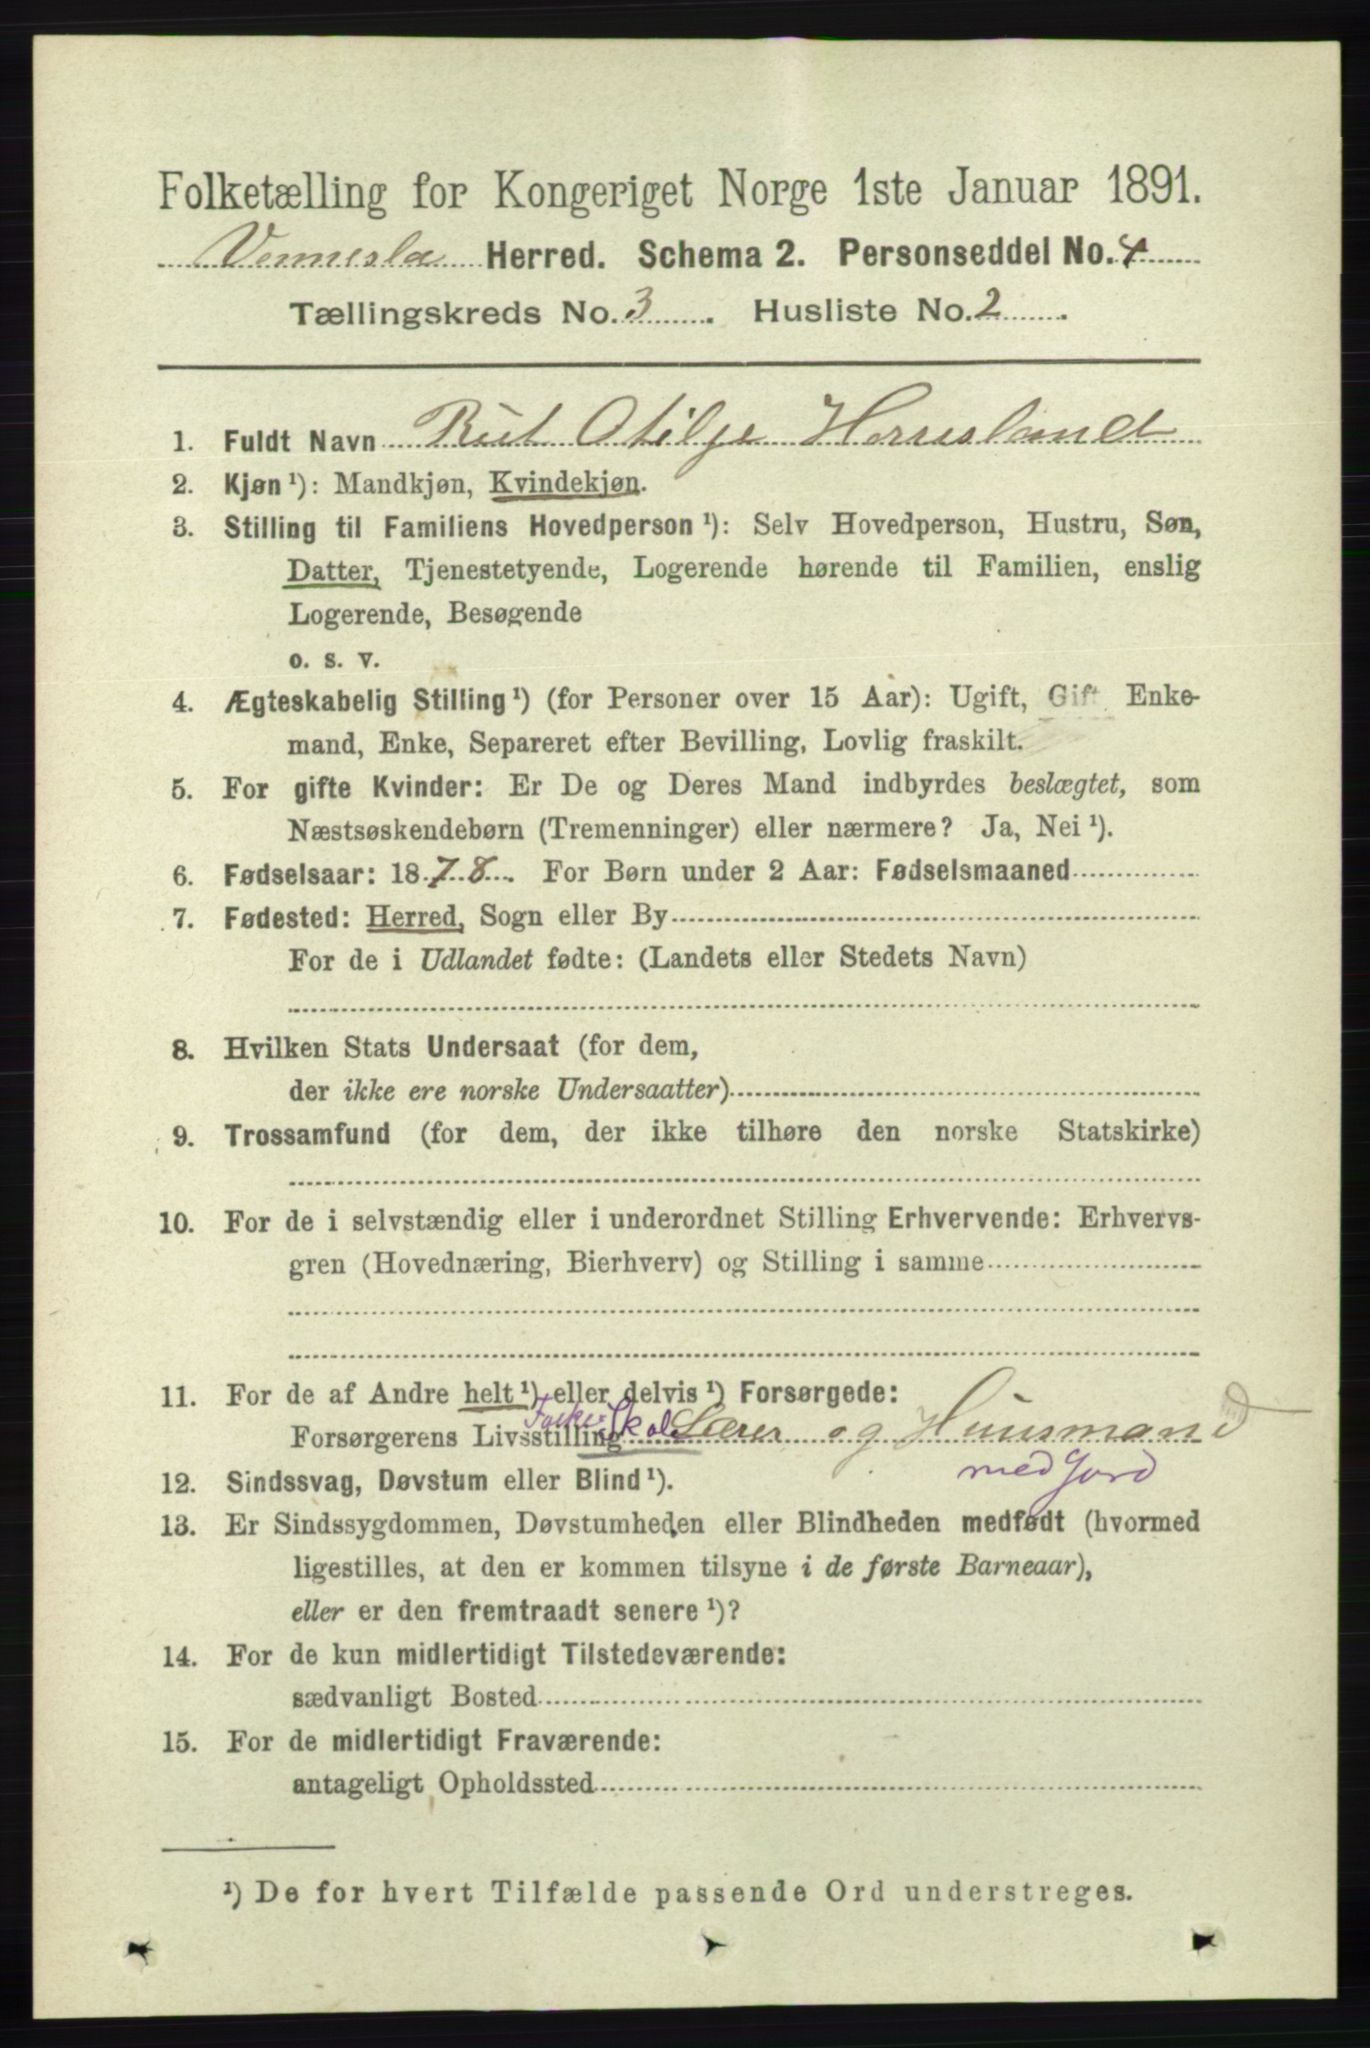 Folketælling for Kongeriget Norge 1ste Januar 1891.
Vennesla Herred. Schema 2. Personseddel No. 4
Tællingskreds No. 3. Husliste No. 2.
1. Fuldt Navn Rut Otilje Horrisland
2. Kjøn ¹): Mandkjøn, Kvindekjøn.
3. Stilling til Familiens Hovedperson ¹): Selv Hovedperson, Hustru, Søn,
Datter, Tjenestetyende, Logerende hørende til Familien, enslig
Logerende, Besøgende
o. s. v.
4. Ægteskabelig Stilling ¹) (for Personer over 15 Aar): Ugift, Gift, Enke-
mand, Enke, Separeret efter Bevilling, Lovlig fraskilt.
5. For gifte Kvinder: Er De og Deres Mand indbyrdes beslægtet, som
Næstsøskendebørn (Tremenninger) eller nærmere? Ja, Nei ¹).
6. Fødselsaar: 1878. For Børn under 2 Aar: Fødselsmaaned
7. Fødested: Herred, Sogn eller By
For de i Udlandet fødte: (Landets eller Stedets Navn)
8. Hvilken Stats Undersaat (for dem,
der ikke ere norske Undersaatter)
9. Trossamfund (for dem, der ikke tilhøre den norske Statskirke)
10. For de i selvstændig eller i underordnet Stilling Erhvervende: Erhvervs-
gren (Hovednæring, Bierhverv) og Stilling i samme
11. For de af Andre helt ¹) eller delvis ¹) Forsørgede:
Forsørgerens Livsstilling Skol Lærer og Huusmand
med Jord
12. Sindssvag, Døvstum eller Blind ¹).
13. Er Sindssygdommen, Døvstumheden eller Blindheden medfødt (hvormed
ligestilles, at den er kommen tilsyne i de første Barneaar),
eller er den fremtraadt senere ¹)?
14. For de kun midlertidigt Tilstedeværende:
sædvanligt Bosted
15. For de midlertidigt Fraværende:
antageligt Opholdssted
¹) De for hvert Tilfælde passende Ord understreges.